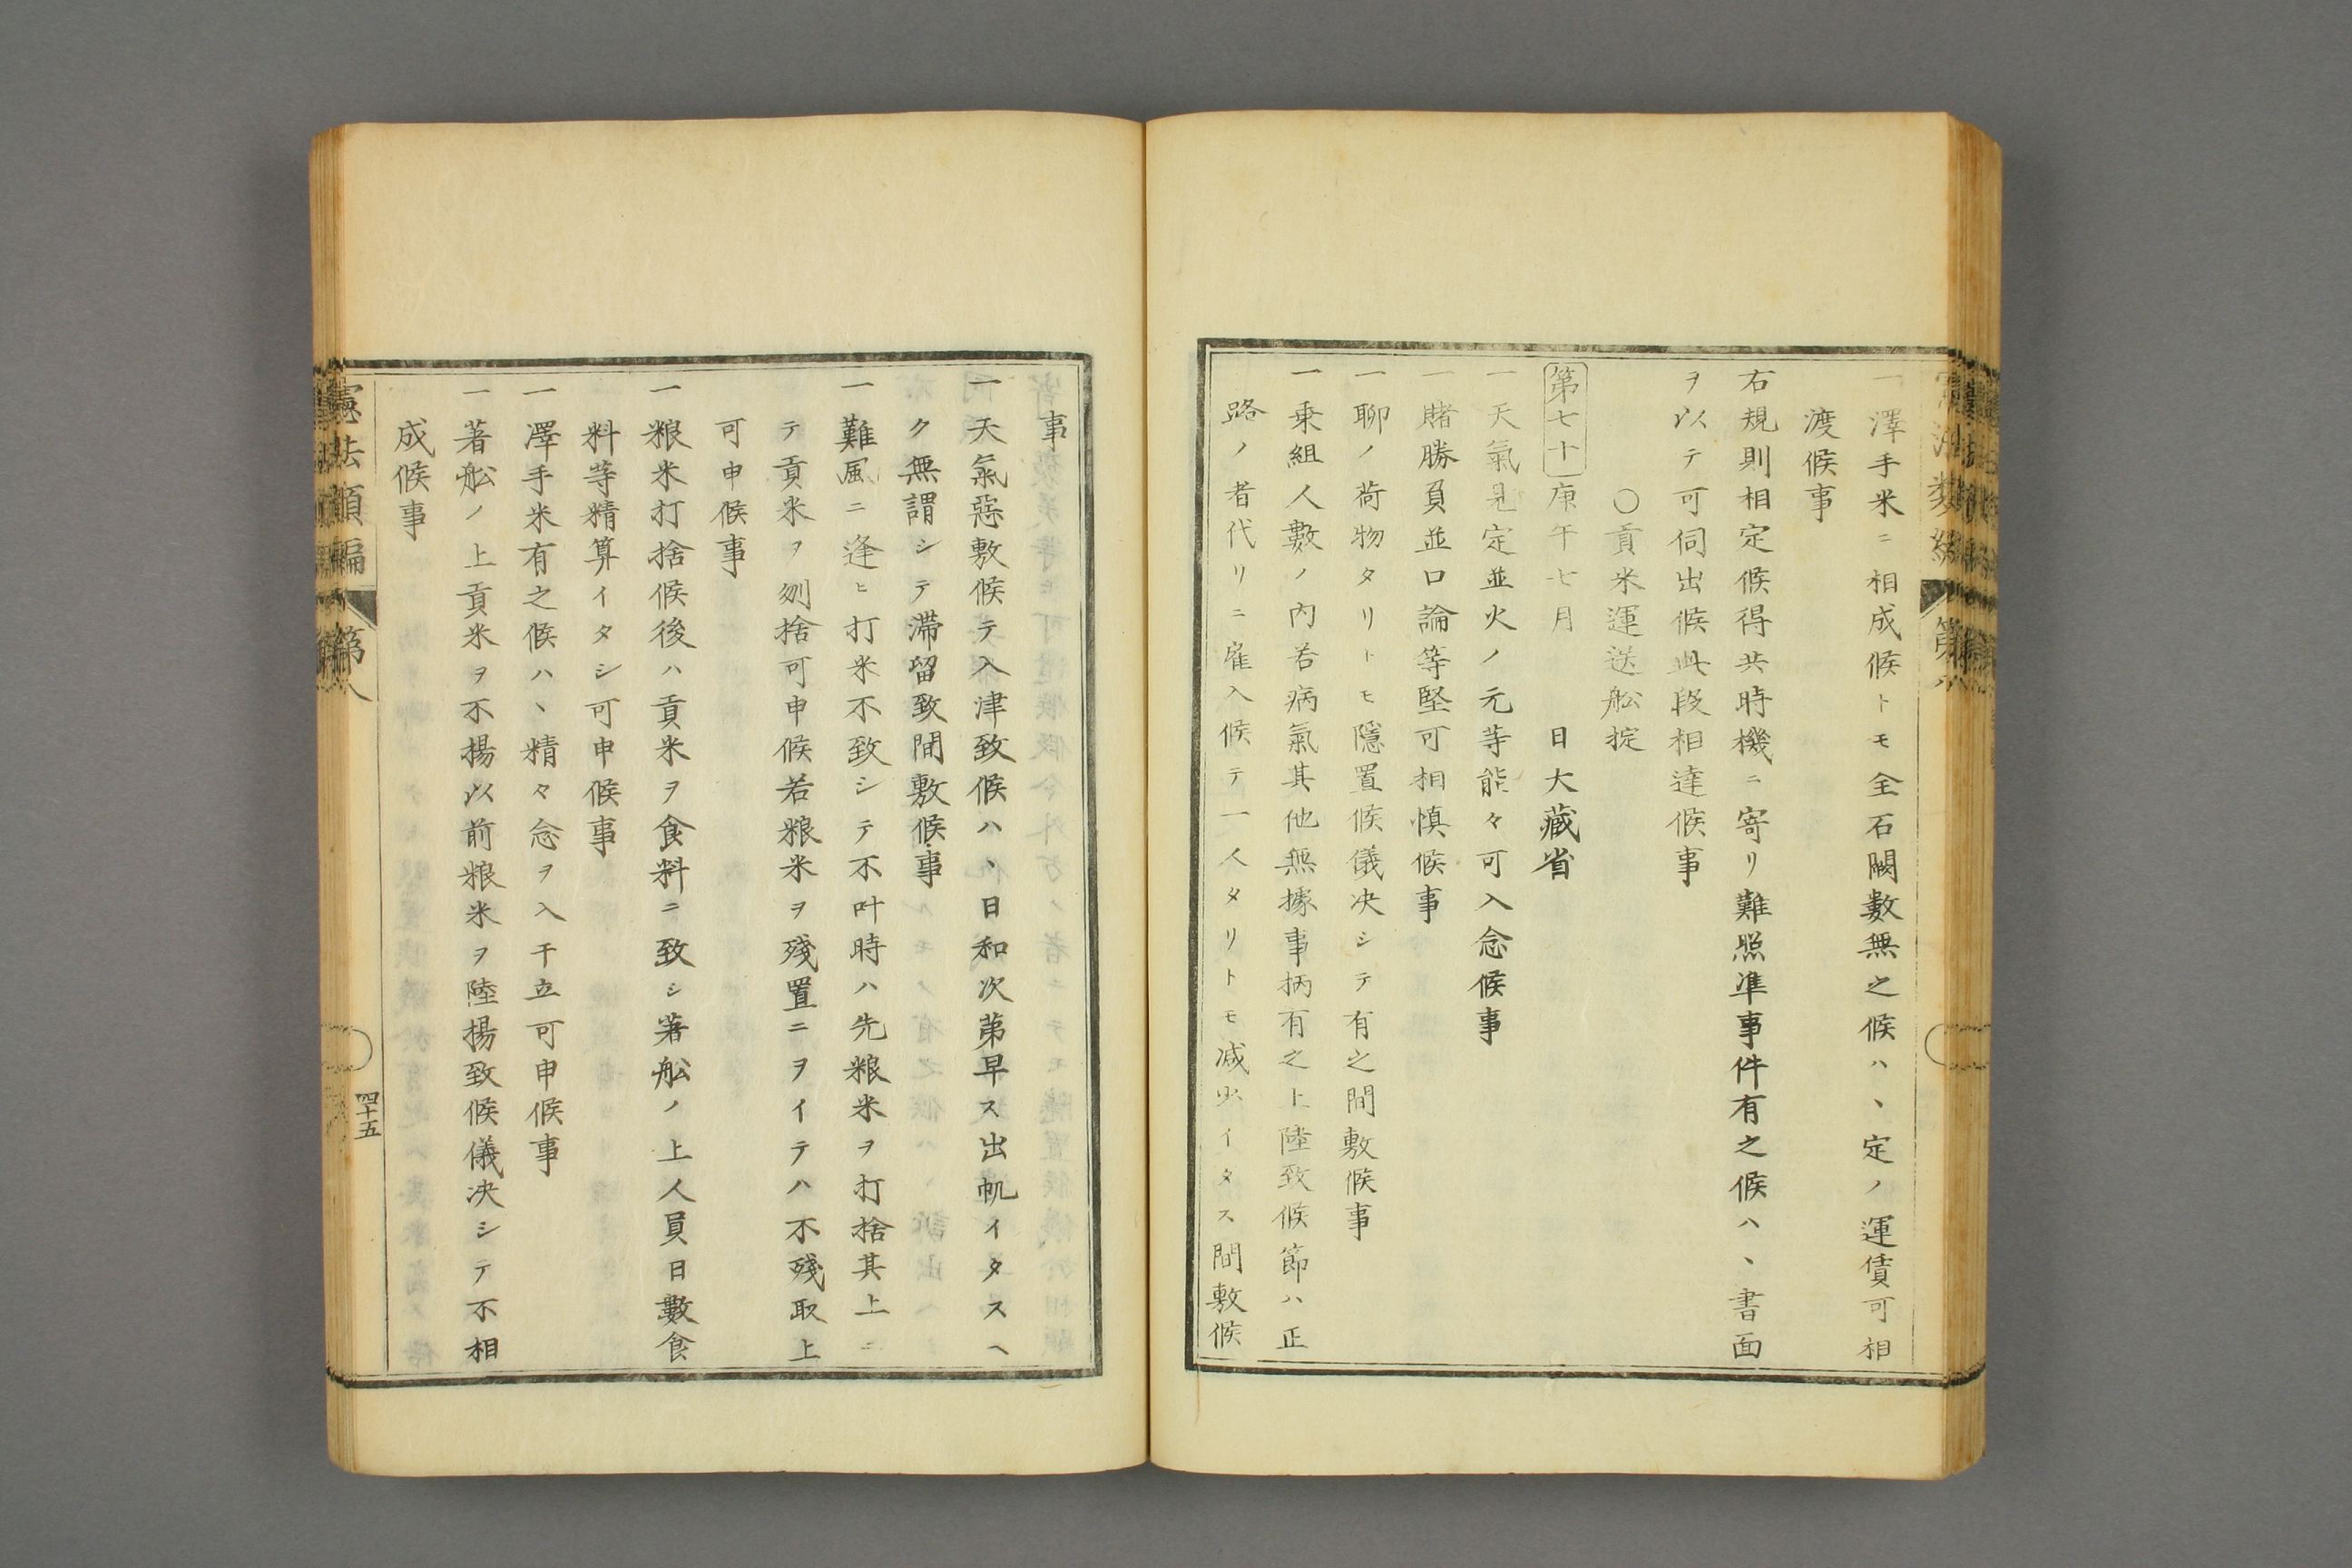 一澤手米ニ相成候トモ全石闕數無之候ハヽ定ノ運賃可相
渡候事
右規則相定候得共時機ニ寄リ難照準事件有之候ハヽ書面
ヲ以テ可伺出候此段相達候事
〇貢米運送舩掟
第七十 庚午七月 日大藏省
一天氣見定並火ノ元等能々可入念候事
一賭勝負並口論等堅可相慎候事
一聊ノ荷物タリトモ隱置候儀决シテ有之間敷候事
一乗組人數ノ內若病氣其他無據事柄有之上陸致候節ハ正
路ノ者代リニ雇入候テ一人タリトモ減少イタス間敷候
事
一天氣惡敷候テ入津致候ハヽ日和次第早ス出帆イタスヘ
ク無謂シテ滯留致間敷候事
一難風ニ逢ヒ打米不致シテ不叶時ハ先粮米ヲ打捨其上ニ
テ貢米ヲ刎捨可申候若粮米ヲ殘置ニヲイテハ不殘取上
可申候事
一粮米打捨候後ハ貢米ヲ食料ニ致シ著舩ノ上人員日數食
料等精算イタシ可申候事
一澤手米有之候ハヽ精々念ヲ入干立可申候事
一著舩ノ上貢米ヲ不揚以前粮米ヲ陸揚致候儀决シテ不相
成候事
憲法類編 第八
四十五